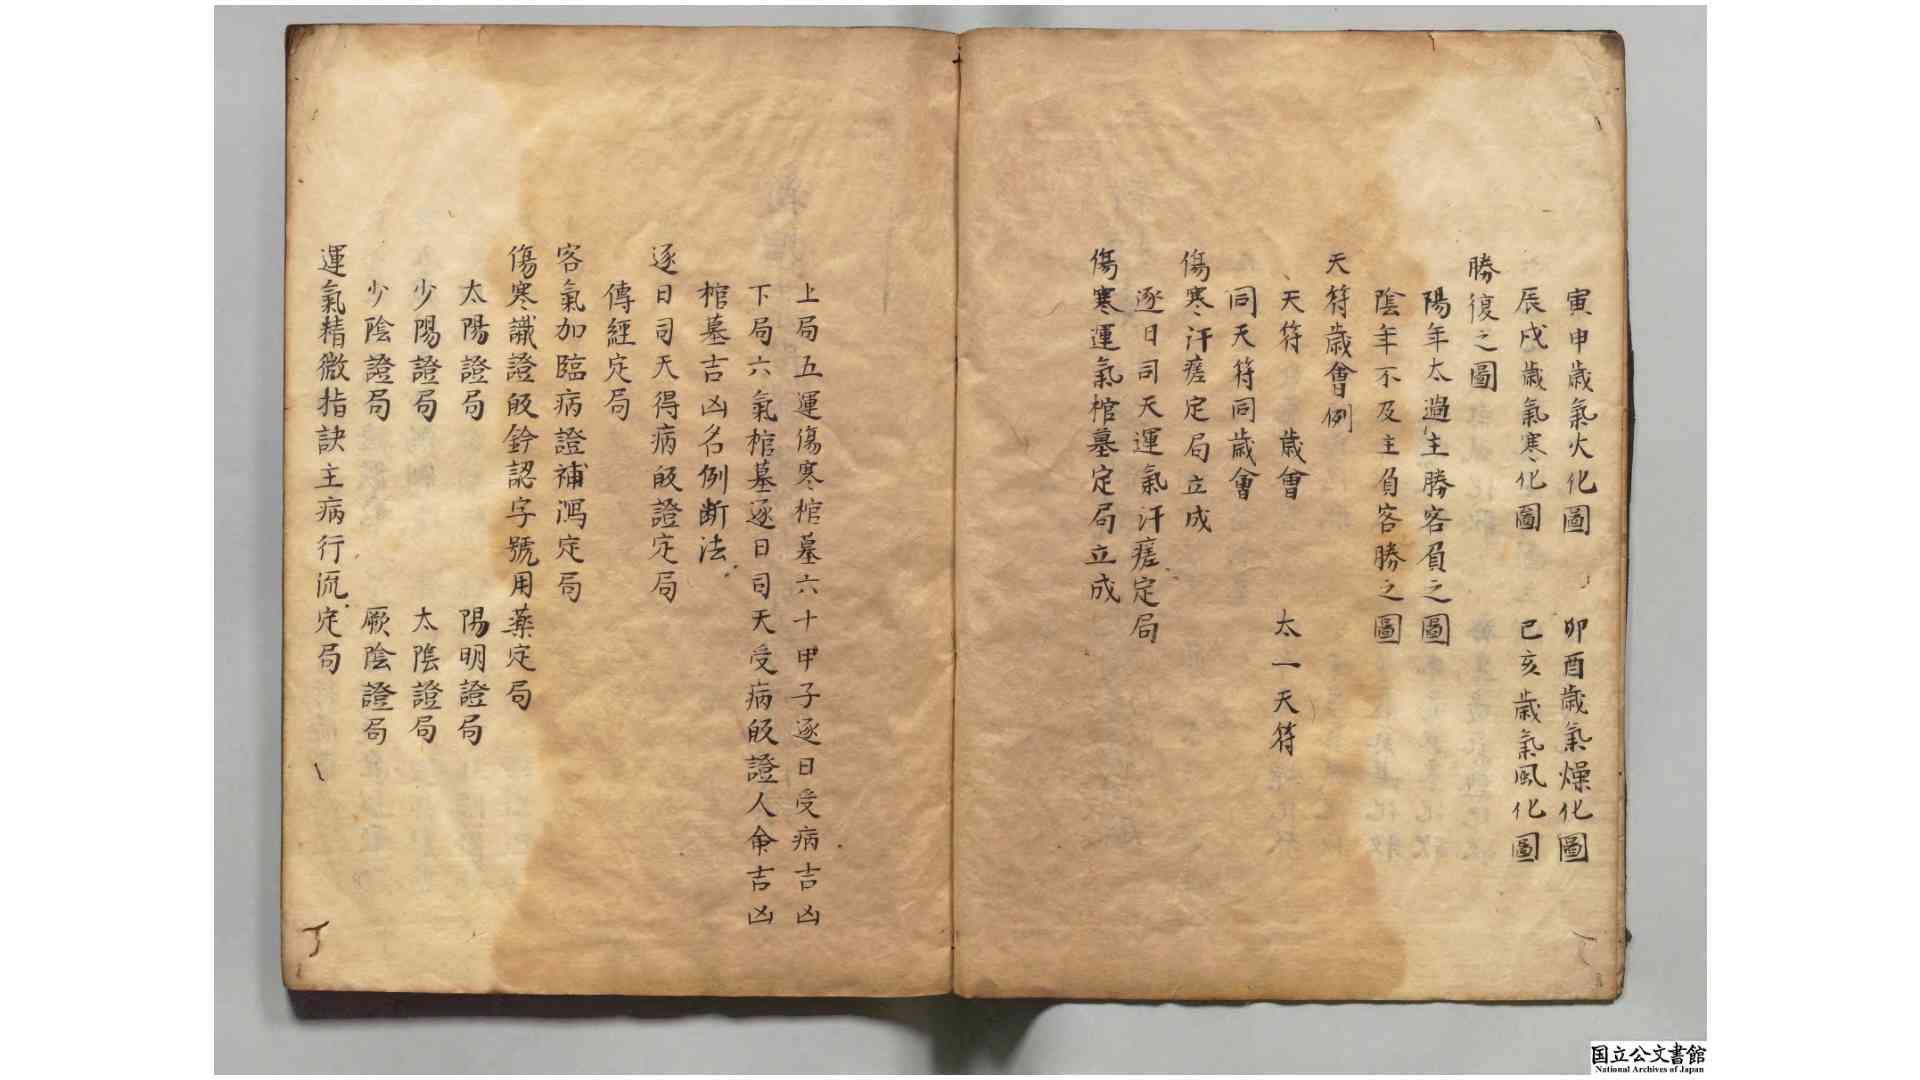 寅申歲氣火化圖　卯酉歲氣燥化圖
辰戌歲氣寒化圖　己亥歲氣風化圖
勝復之圖
陽年太過主勝客負之圖
陰年不及主負客勝之圖
天符歲會例
天符　歲會　太一天符
同天符同歲會
傷寒汗瘥定局立成
逐日司天運氣汗瘥定局
傷寒運氣棺墓定局立成
上局五運傷寒棺墓六十甲子逐日受病吉凶
下局六氣棺墓逐日司天受病㽹證人命吉凶
棺墓吉凶名例断法
逐日司天得病㽹證定局
傳經定局
客氣加臨病證補瀉定局
傷寒識證㽹鈐認字號用藥定局
太陽證局　陽明證局
少陽證局　太陰證局
少陰證局　厥陰證局
運氣精微指訣主病行流定局
国立公文書館
National Archives of Japan